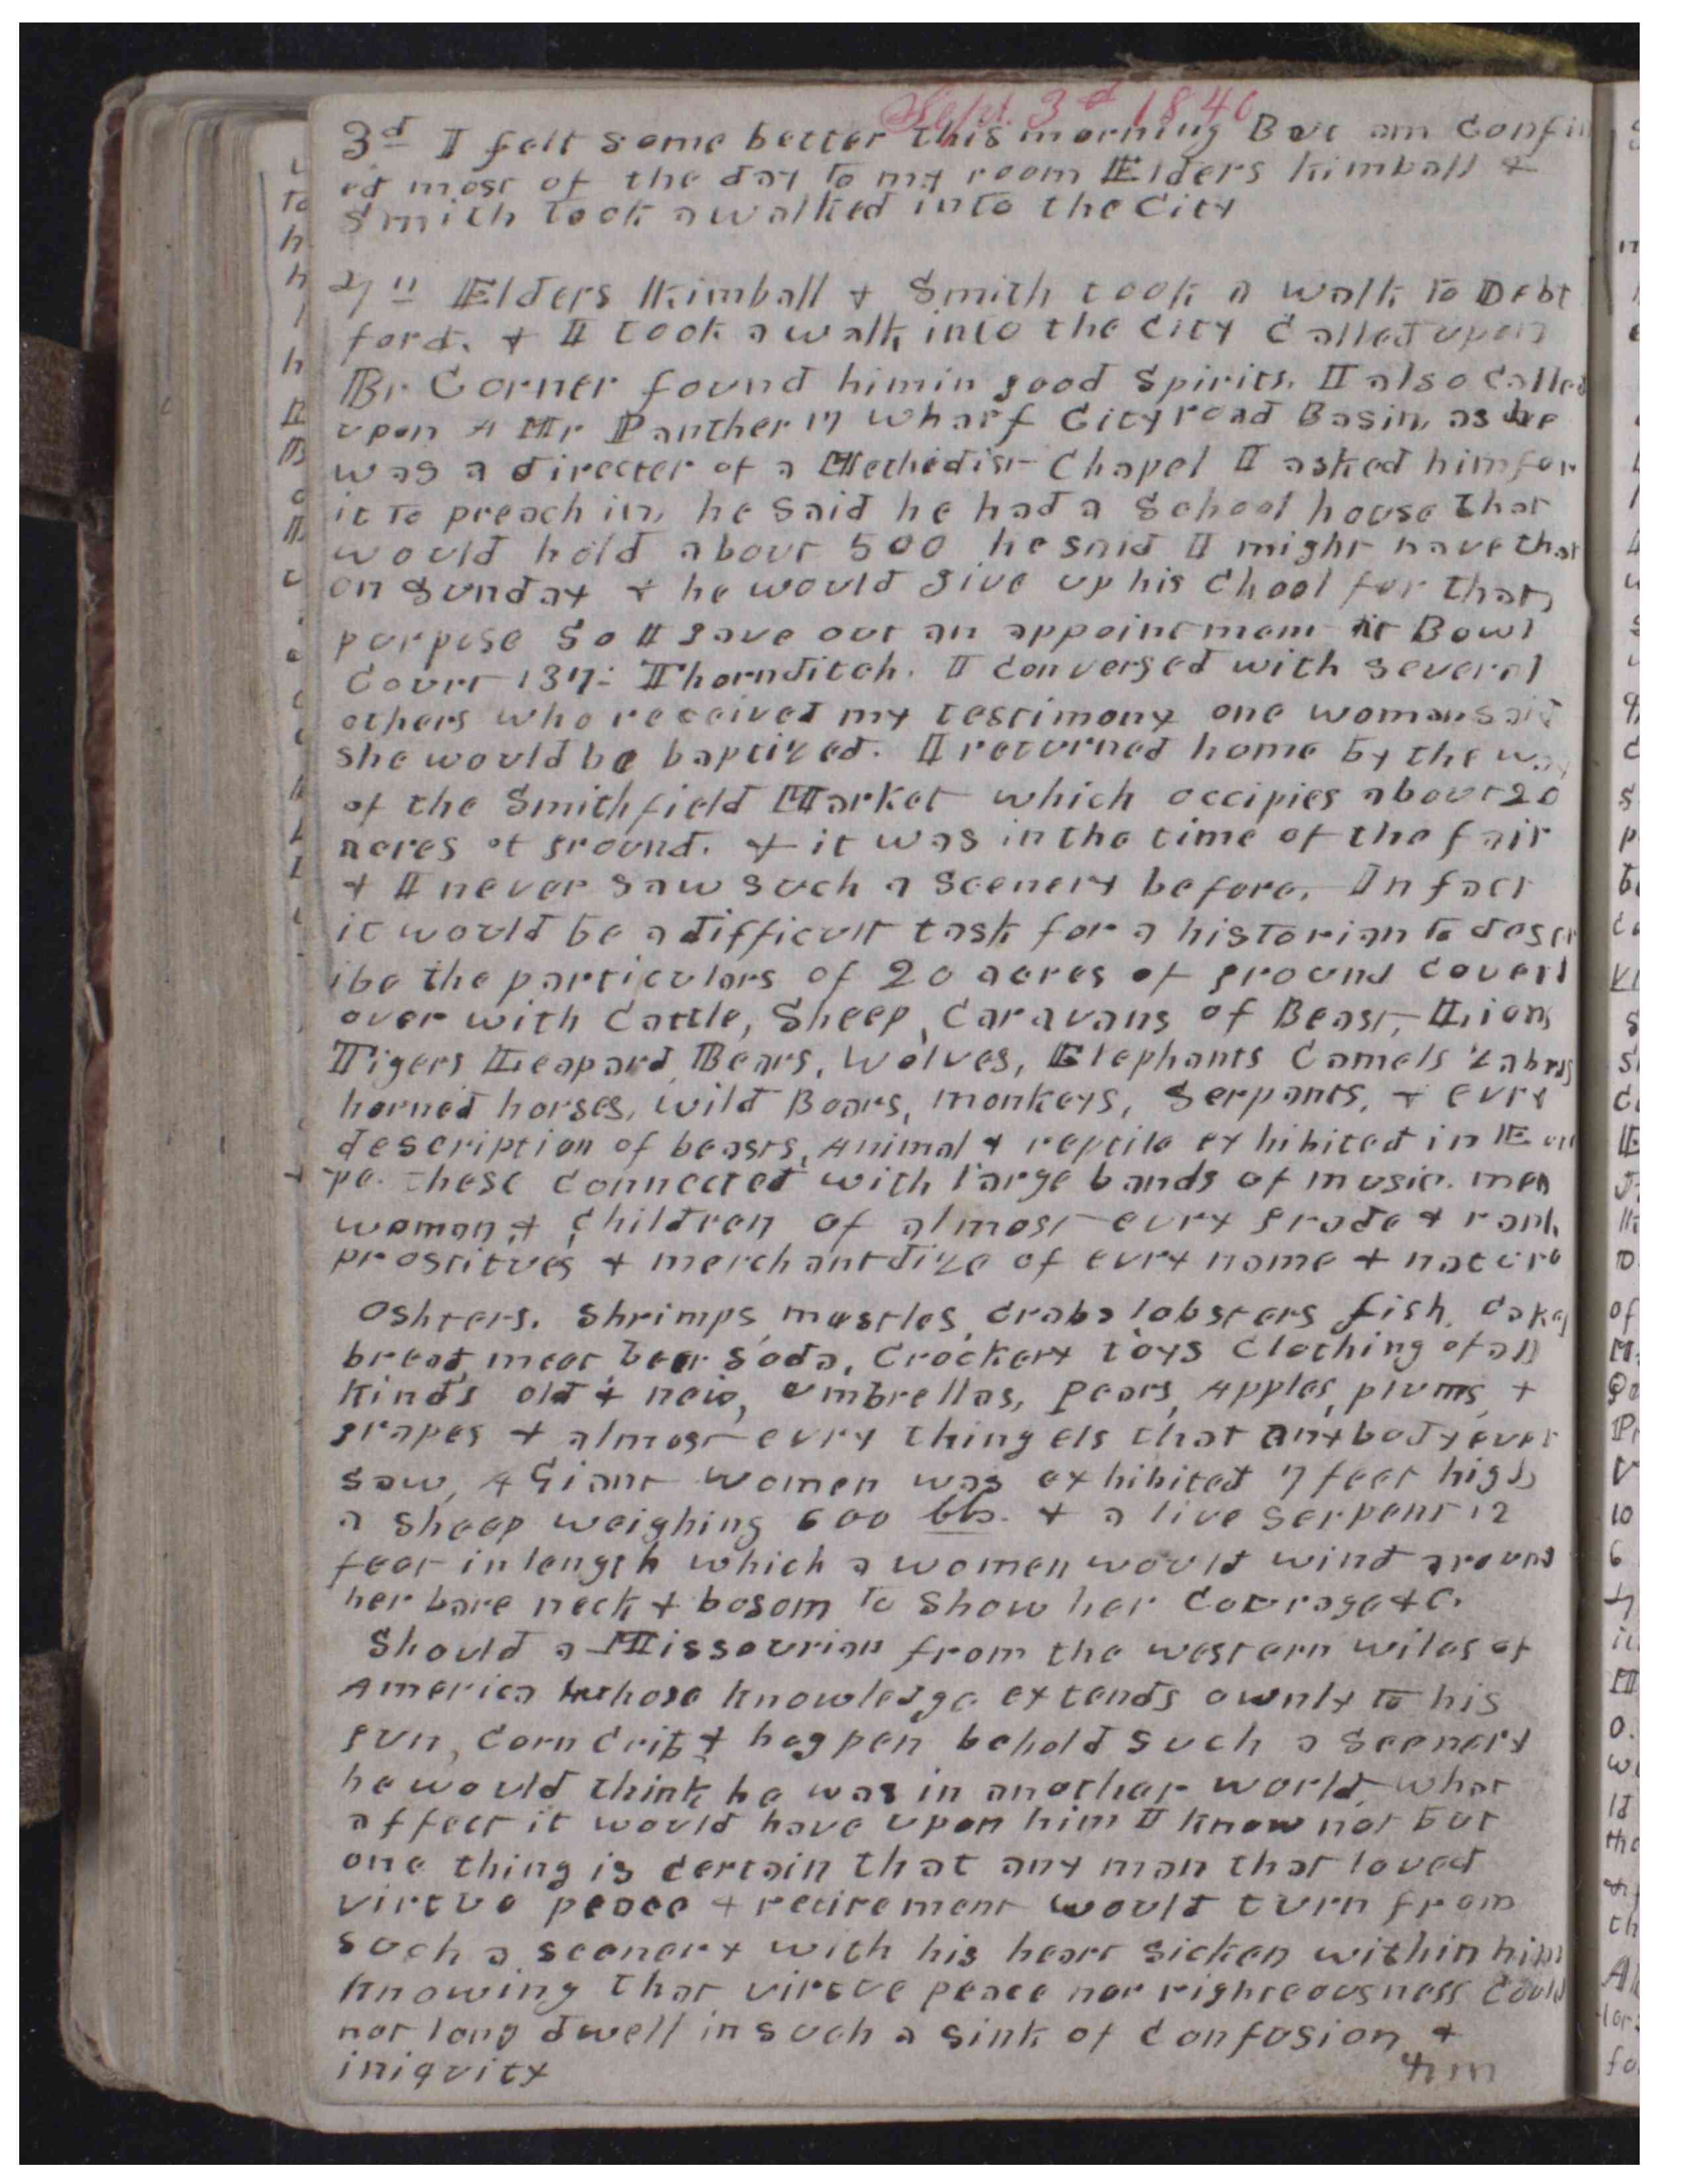 Sept. 3d 1840
3d I felt some better this morning But am Confin
ed most of the day to my room Elders Kimball &
Smith took a walked into the City
4th Elders Kimball & Smith took a walk to Debt
ford. & I took a walk into the City Called upon
Br Corner found him in good Spirits. I also Called
upon A Mr Panther 17 wharf City road Basin, as he
was a directer of a Methidist Chapel I asked him for
it to preach in, he Said he had a School house that
would hold about 500 he said I might have that
on Sunday & he would give up his Chool for that
purpose So I gave out an appointment at Bowl
Court 137: Thornditch. I Conversed with several
others who received my testimony one woman said
she would be baptized. I returned home by the way
of the Smithfield Market which occipies about 20
acres of ground. & it was in the time of the fair
& I never saw such a Scenery before. In fact
it would be a difficult task for a historian to descr
ibe the particulars of 20 acres of ground Coverd
over with Cattle, Sheep, Caravans of Beast, Lions
Tigers Leapard Bears, Wolves, Elephants Camels Zabras
horned horses, wild Boars, monkeys, Serpants, & evry
description of beasts, Animal & reptile exhibited in Eu
pe. these Connected with large bands of music. men
woman, & Children of almost evry grade & rank
prostitues & merchantdize of evry name & nature
Oshters. Shrimps, mustles, Crabs lobsters fish, Cakes
bread, meat beer Soda, Crockery toys Clothing of all
Kinds old & new, umbrellas, Pears, Apples, plums, &
grapes & almost evry thing els that any body ever
saw, A Giant Women was exhibited 7 feet high
a Sheep weighing 600 lbs. & a live Serpent 12
feet in length which a women would wind around
her bare neck & bosom to Show her Courage &c.
Should a Missourian from the western wiles of
America whose knowledge extends ownly to his
gun, Corn Crib & hog pen behold Such a Scenery
he would think he was in another world, what
affect it would have upon him I know not but
one thing is Certain that any man that loved
virtue peace & retirement would turn from
Such a scenery with his heart Sicken within him
Knowing that virtue peace nor righteousness Could
not long dwell in such a sink of Confusion &
iniquity